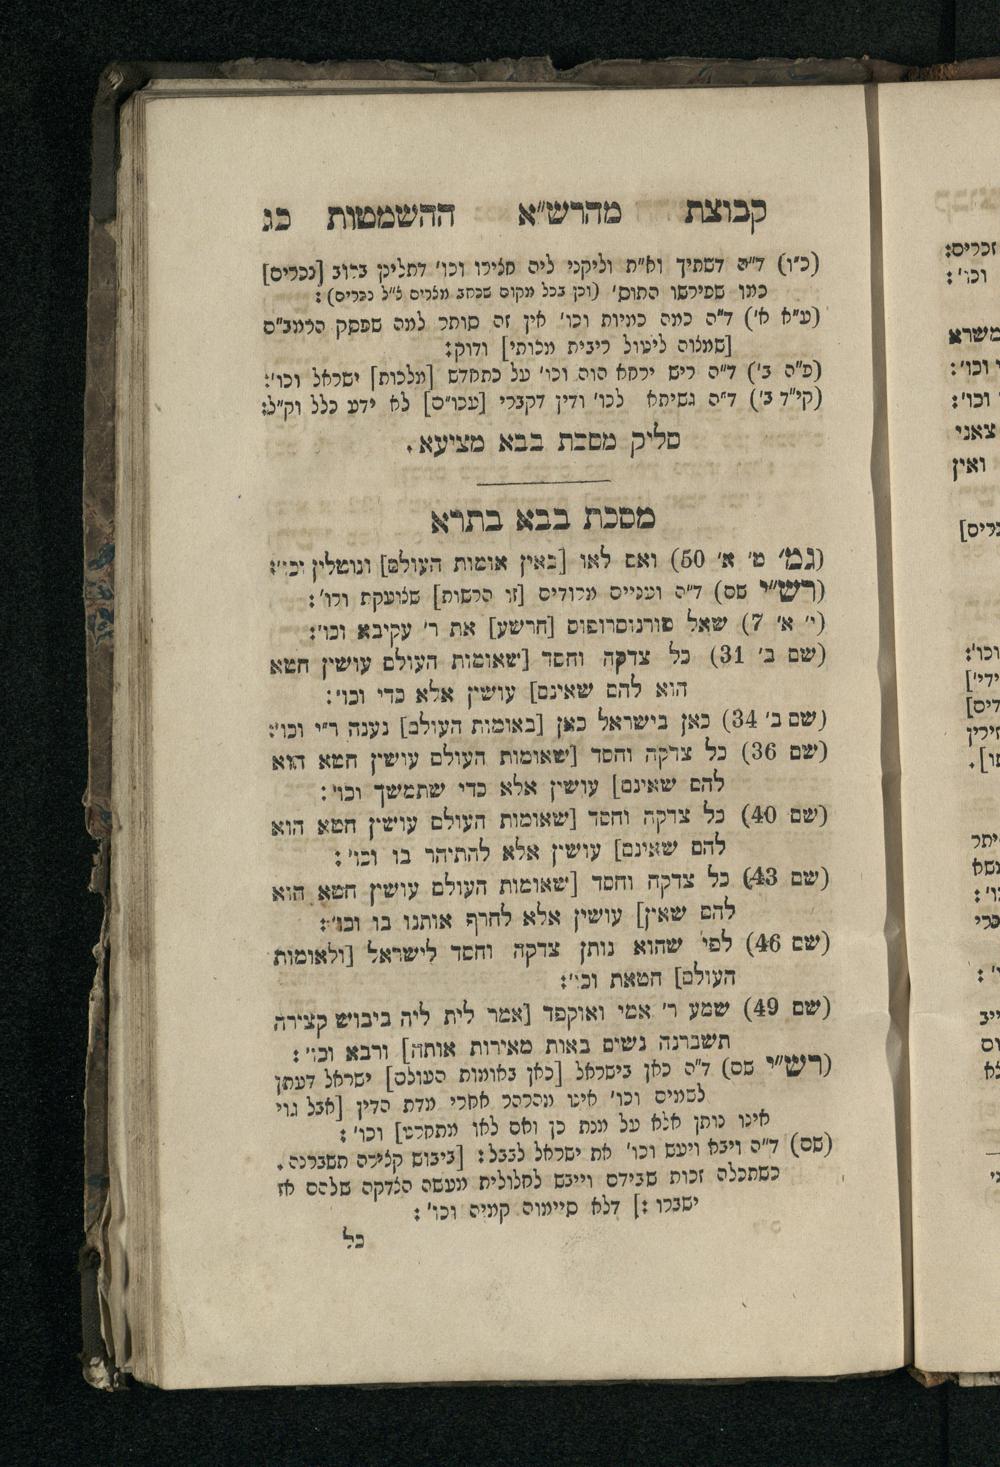 קבוצת מהרש״א ההשמטות כג
(כ״ו) ד״ה דשתיך וא״ת וליקני ליה חצירו וכו׳ דתלינן ברוב [נכרים]
כמו שפירשו התוס׳ (וכן בכל מקום שכתב מצרים צ״ל נכרים) :
(ע״א א׳) ד״ה כמה כמיות וכו׳ אין זה סותר למה שפסק הרמב״ם
[שמצוה ליטול ריבית מכותי] ודוק:
(פ״ה ב׳) ד״ה ריש ירחא הוה וכו׳ על כתחדש [מלכות] ישראל וכו׳:
(קי״ד ב׳) ד״ה גשיתא לכו׳ ודין דקברי [עכו״ם] לא ידע כלל וק״ל:
סליק מסכת בבא מציעא.
מסכת בבא בתרא
(גמ׳ ט׳ א׳ 50) ואם לאו [באין אומות העולם] ונוטלין וכו׳:
(רש״י שם) ד״ה ועניים מרודים [זו הרשות] שצועקת וכו׳:
(י׳ א׳ 7) שאל טורנוסרופוס [הרשע] את ר׳ עקיבא וכו׳:
(שם ב׳ 31) כל צדקה וחסד [שאומות העולם עושין חטא
הוא להם שאינם] עושין אלא כדי וכו׳:
(שם ב׳ 34) כאן בישראל כאן [באומות העולם] נענה ר״י וכו׳:
(שם 36) כל צדקה וחסד [שאומות העולם עושין חטא הוא
להם שאינם] עושין אלא כדי שתמשך וכו׳:
(שם 40) כל צדקה וחסד [שאומות העולם עושין חטא הוא
להם שאינם] עושין אלא להתיהר בו וכו׳:
(שם 43) כל צדקה וחסד [שאומות העולם עושין חטא הוא
להם שאין] עושין אלא לחרף אותנו בו וכו׳:
(שם 46) לפי שהוא נותן צדקה וחסד לישראל [ולאומות
העולם] חטאת וכו׳:
(שם 49) שמע ר׳ אמי ואוקפד [אמר לית ליה ביבוש קצירה
תשברנה נשים באות מאירות אותה] ורבא וכו׳:
(רש״י שם) ד״ה כאן בישראל [כאן באומות העולם] ישראל דעתן
לשמים וכו׳ אינו מהרהר אחרי מדת הדין [אבל גוי
אינו נותן אלא על מנת כן ואם לאו מתחרט] וכו׳:
(שם) ד״ה ויבא ויעש וכו׳ את ישראל לבבל: [ביבוש קצירה תשברנה.
כשתכלה זכות שבידם וייבש לחלולית מעשה הצדקה שלהם אז
ישברו:] דלא סיימוה קמיה וכו׳:
כל
זכרים:
וכו׳:
משרא
וכו׳:
וכו׳:
צאני
ואין
וכו׳: